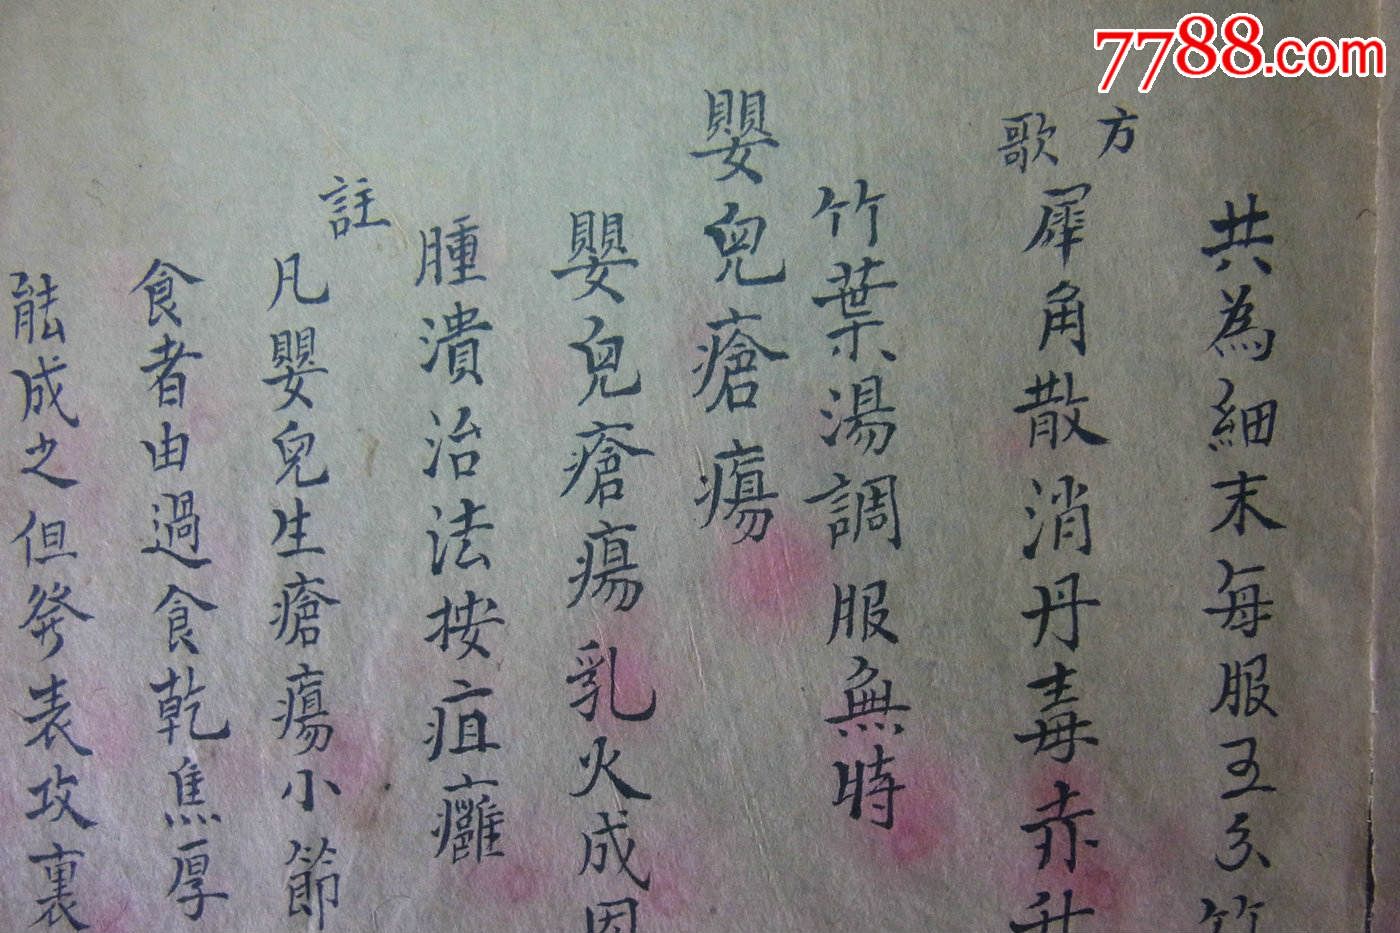 7788.com
共為細末每服五分竹
方
歌
犀角散消丹毒赤升
竹葉湯調服無時
嬰兒瘡瘍
嬰兒瘡瘍乳火成因
腫潰治法按疽癰
註
凡嬰兒生瘡瘍小節
食者由過食乾焦厚
能成之但發表攻裏